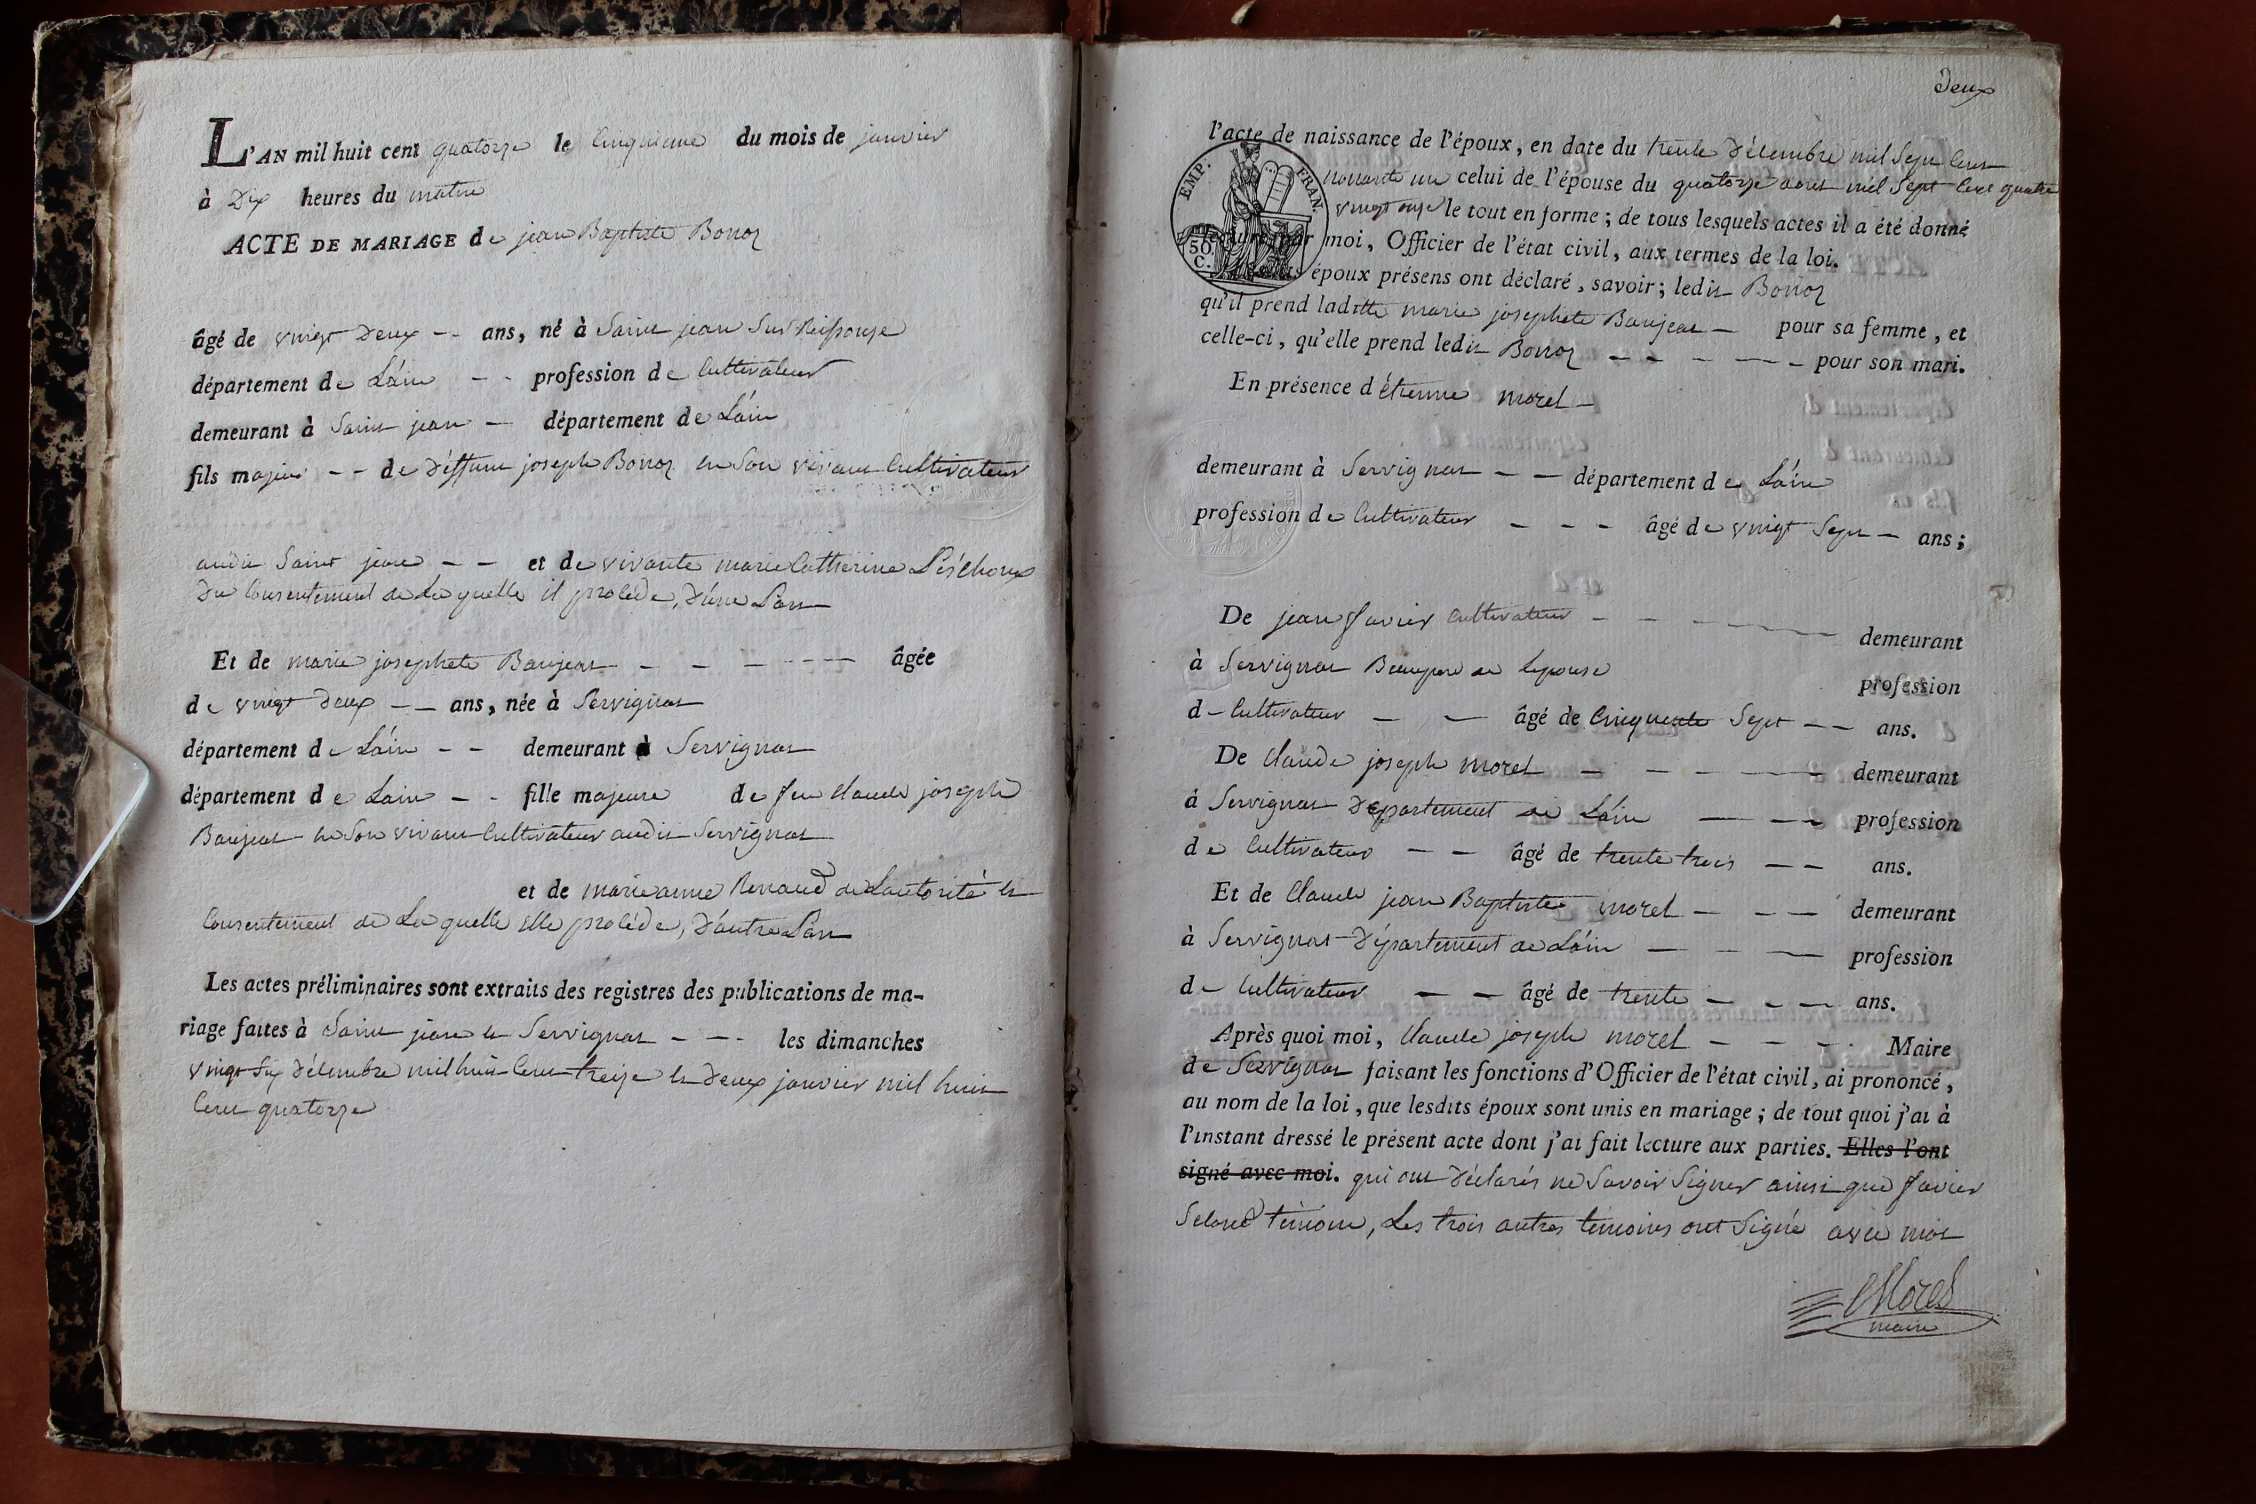 L'AN mil huit cent quatorze le Cinquieme du mois de janvier
à Dix heures du matin
ACTE DE MARIAGE de jean Baptiste Bonoz
âgé de vingt Deux -- ans, né à Saint jean Sur Reissouze
département de L'ain -- profession de Cultivateur
demeurant à Saint jean - département de L'ain
fils majeur -- de Déffunt joseph Bonoz en Son vivant Cultivateur
audit Saint jean -- et de vivante marie Catherine
Du Consentement de La quelle il procède, D'une Part
Et de marie josephete Baujeat - - - - - - âgée
de vingt Deux -- ans, née à Servignat
département de L'ain -- demeurant à Servignat
département de Lain -- fille majeure de feu Claude joseph
Baujeat en Son vivant Cultivateur audit Servignat
et de marie anne Renaud de Lautorité et
Consentement de La quelle elle procède, D'autre Part
Les actes préliminaires sont extraits des registres des publications de ma-
riage faites à Saint jean et Servignat - - - les dimanches
vingt Six Décembre mil huit Cent treize et Deux janvier mil huit
Cent quatorze
Deux
l'acte de naissance de l'époux, en date du trente Décembre mil Sept Cent
nonante un celui de l'épouse du quatorze aout mil Sept Cent quatre
vingt onze le tout en forme ; de tous lesquels actes il a été donné
moi, Officier de l'état civil, aux termes de la loi.
époux présens ont déclaré, savoir ; ledit Bonoz
EMP. FRAN.
50 C.
qu'il prend laditte marie josephete Baujeat - pour sa femme, et
celle-ci, qu'elle prend ledit Bonoz - - - - - pour son mari.
En présence d'étienne morel -
demeurant à Servignat - - département de L'ain
profession de Cultivateur - - - âgé de vingt Sept - ans ;
De jean favier Cultivateur - - - - demeurant
à Servignat Beaupere de Lepouse profession
d- Cultivateur - - âgé de Cinquente Sept -- ans.
De Claude joseph morel - - - - - demeurant
à Servignat Département de L'ain - - - profession
de Cultivateur - - âgé de trente trois -- ans.
Et de Claude jean Baptiste morel - - - demeurant
à Servignat Département de L'ain - - - profession
d- Cultivateur - - âgé de trente - - - ans.
Après quoi moi, Claude joseph morel - - - - Maire
de Servignat faisant les fonctions d'Officier de l'état civil, ai prononcé,
au nom de la loi, que lesdits époux sont unis en mariage ; de tout quoi j'ai à
l'instant dressé le présent acte dont j'ai fait lecture aux parties. Elles l'ont
signé avec moi. qui ont Déclarés ne Savoir Signer ainsi que favier
Second témoin, Les trois autres témoins ont Signé avec moi
Morel
maire